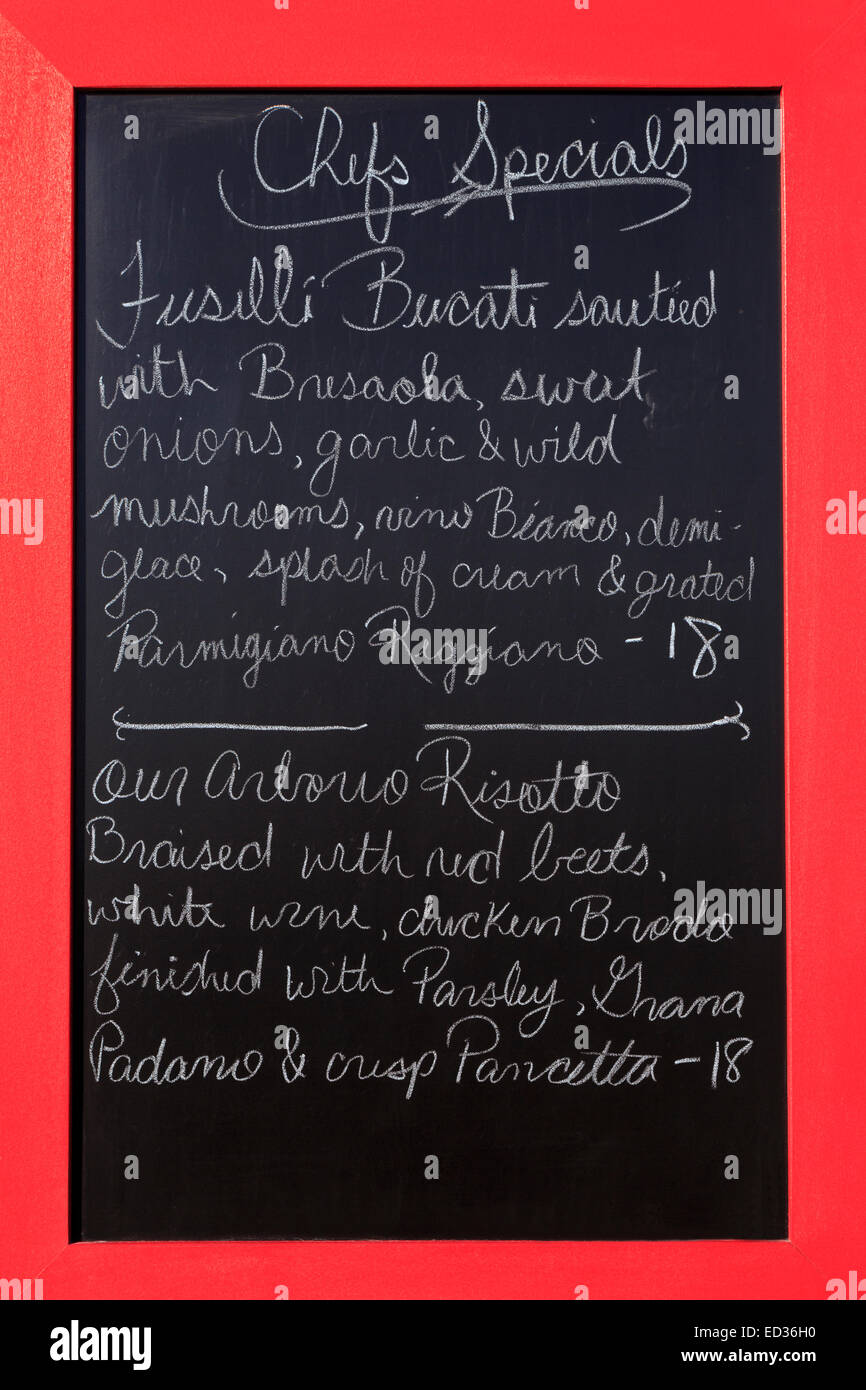 Chefs Specials
Fusilli Bucati sautéed
with Bresaola, sweet
onions, garlic & wild
mushrooms, vino Bianco, demi-
glace, splash of cream & grated
Parmigiano Reggiano - 18
Our Arborio Risotto
Braised with red beets,
white wine, chicken Brodo
finished with Parsley, Grana
Padano & crisp Pancetta - 18
alamy
alamy
Image ID: ED36H0
www.alamy.com